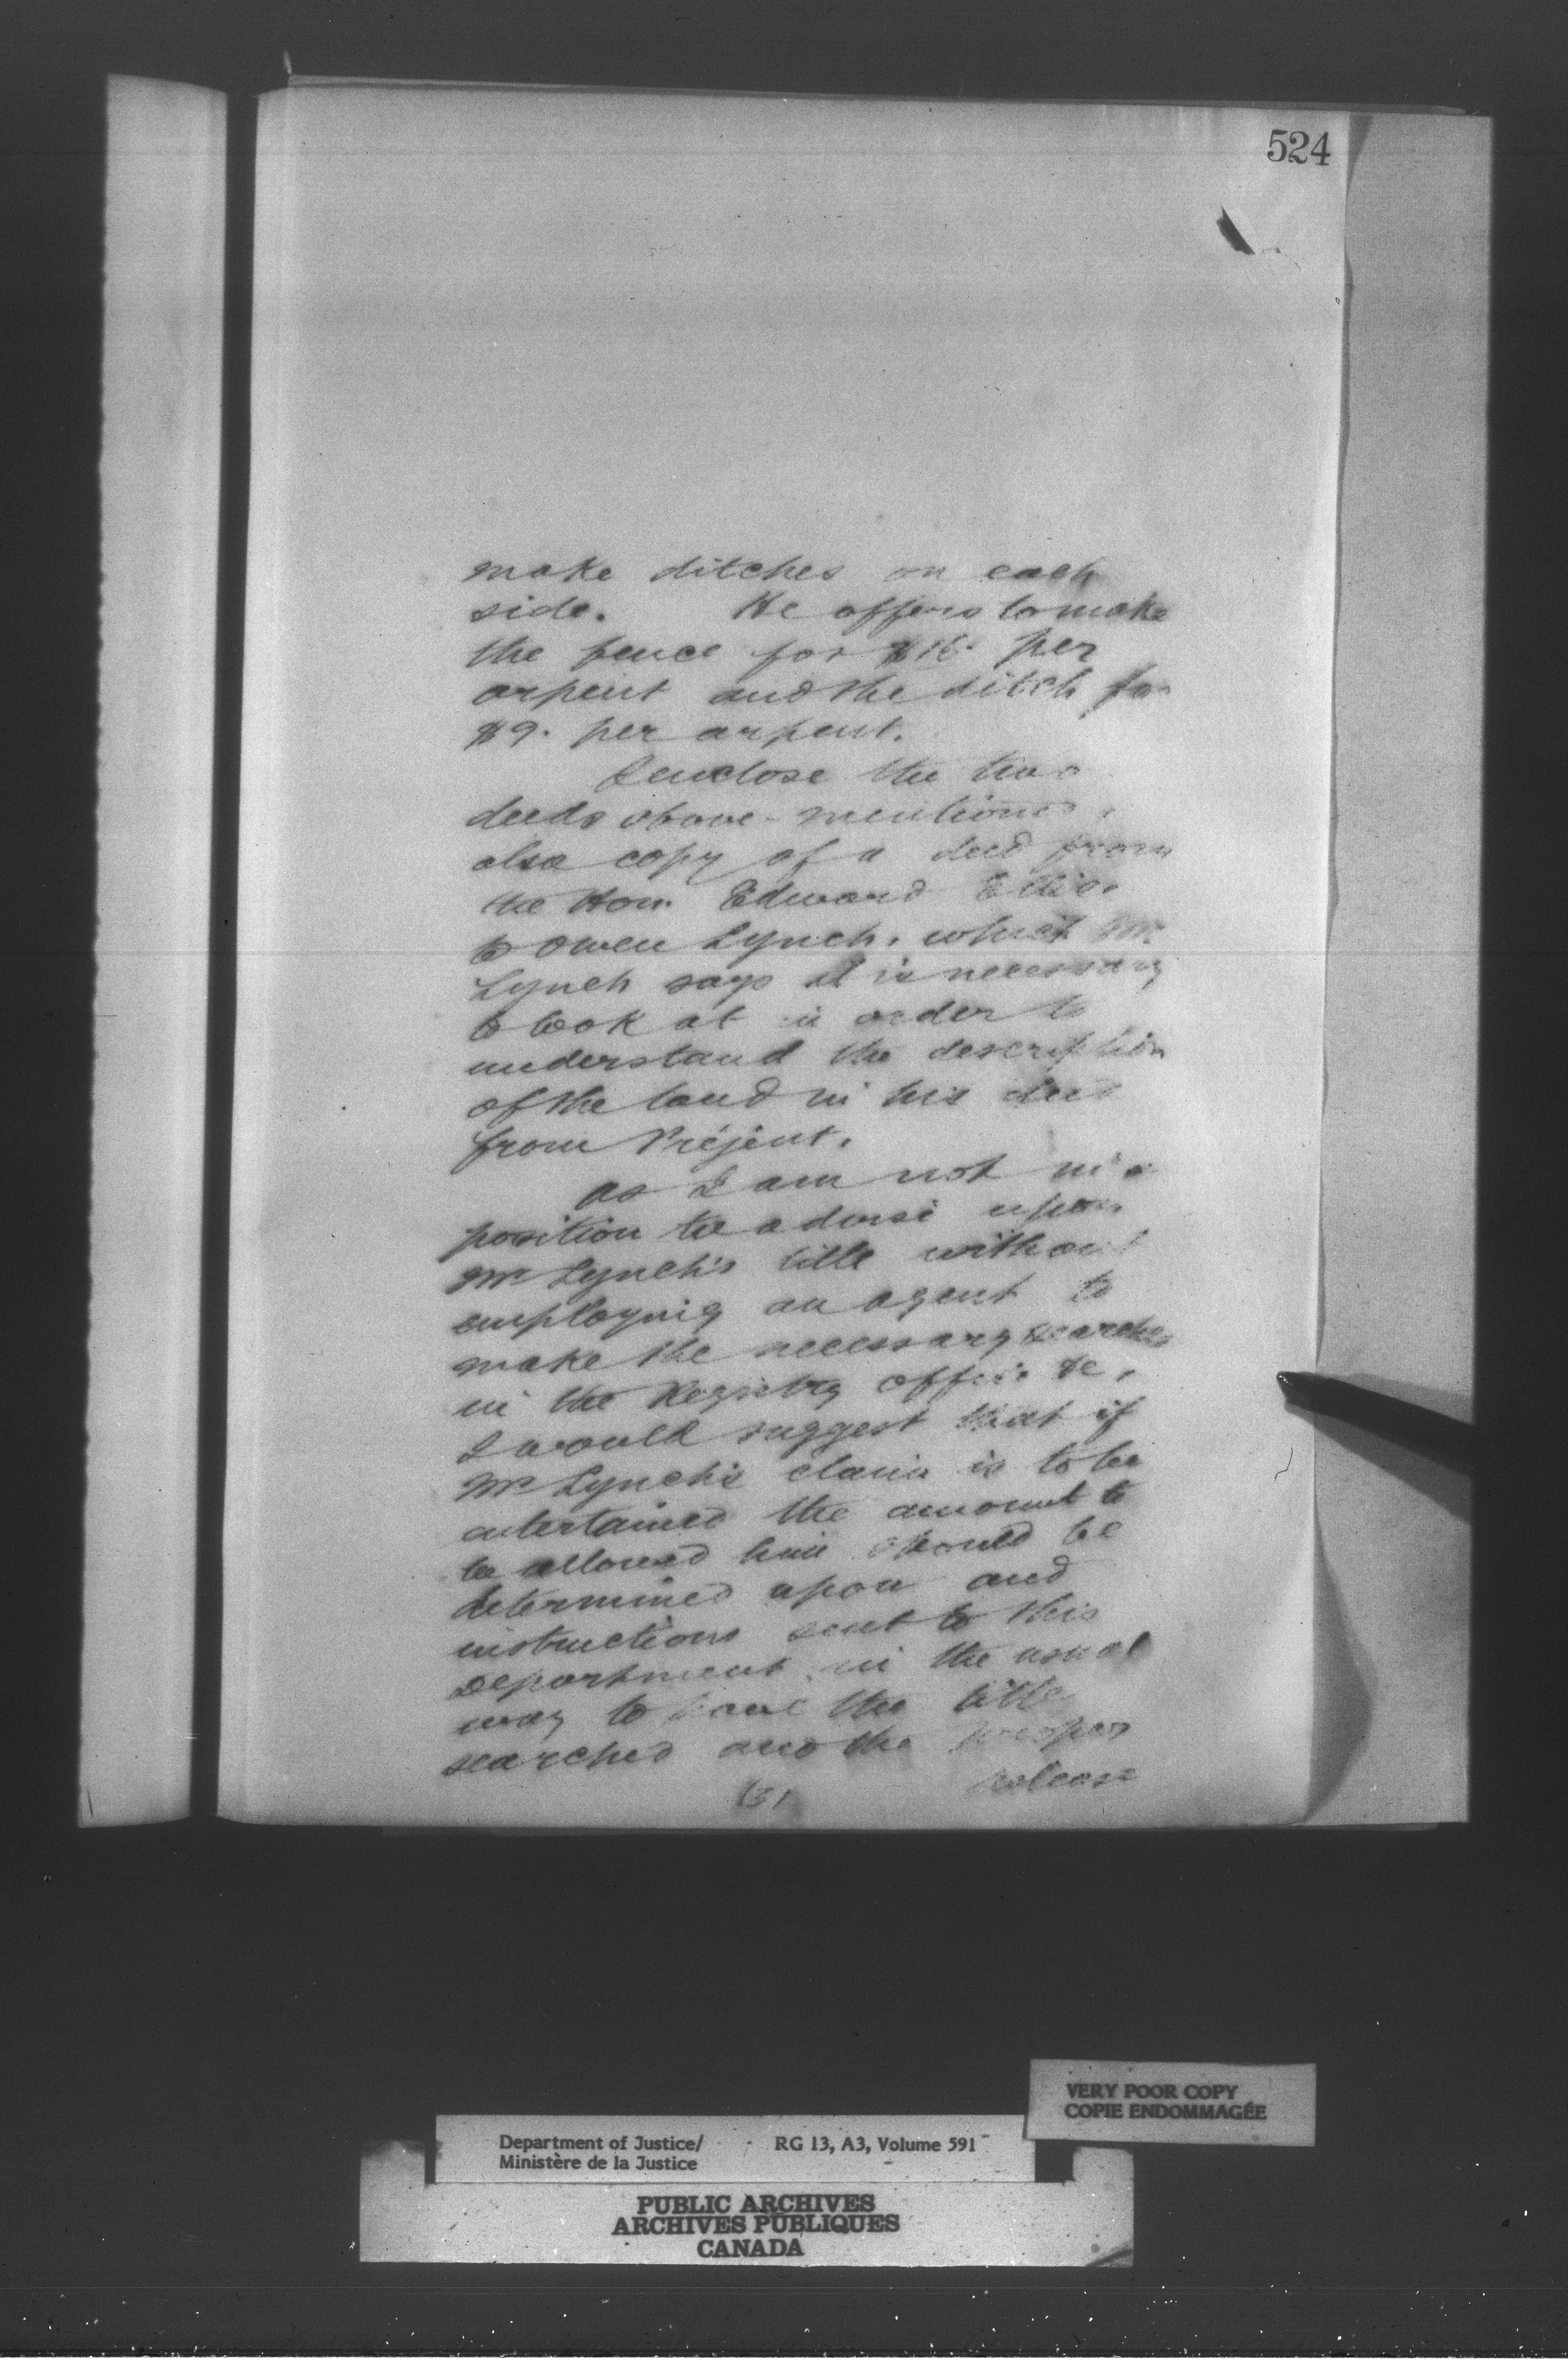 524
make ditches on each
side. He offers to make
the fence for $16. per
arpent and the ditch for
$9. per arpent.
I enclose the two
deeds above-mentioned,
also copy of a deed from
the Hon. Edward Ellice
to Owen Lynch, which Mr
Lynch says it is necessary
to look at in order to
understand the description
of the land in his deed
from Préjent.
As I am not in a
position to advise upon
Mr Lynch's title without
employing an agent to
make the necessary searches
in the Registry office &c,
I would suggest that if
Mr Lynch's claim is to be
entertained the amount to
be allowed him should be
determined upon and
instructions sent to this
Department in the usual
way to have the title
searched and the proper
release
VERY POOR COPY
COPIE ENDOMMAGÉE
Department of Justice/ RG 13, A3, Volume 591
Ministère de la Justice
PUBLIC ARCHIVES
ARCHIVES PUBLIQUES
CANADA